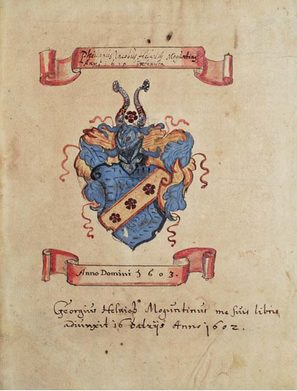 Philippus Jacobus Helwich Moguntinus
Anno Domini 1603.
Georgius Helwich Moguntinus me suis libris
adiunxit 16 Anno 1602.